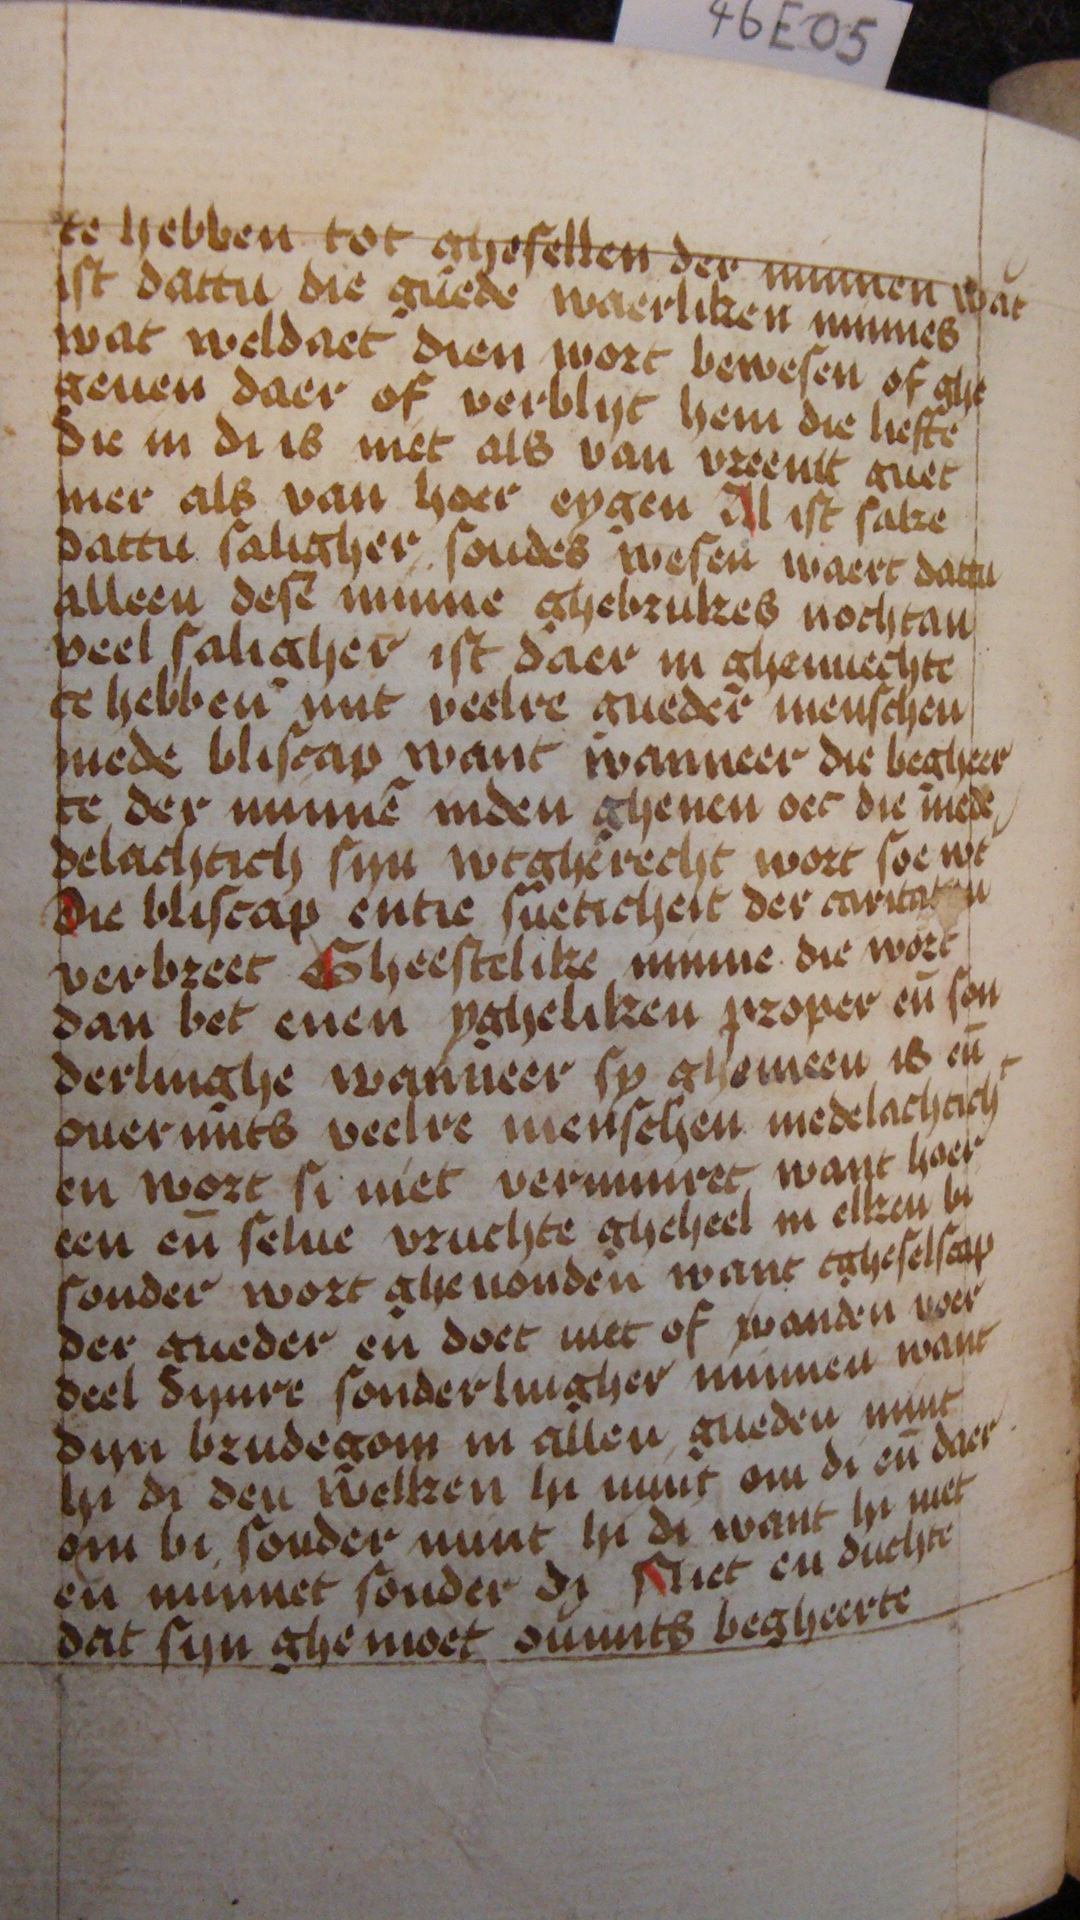 46E05
te hebben tot ghesellen der minnen wāt
ist dattu die guede waerliken minnes
wat weldaet dien wort bewesen of ghe
geuen daer of verblijt hem die liefte
die in di is niet als van vreemt guet
mer als van hoer eygen Al ist sake
dattu saligher soudes wesen waert dattu
alleen dese minne ghebrukes nochtan
veel saligher ist daer in ghenuechte
te hebben mit veelre gueder menschen
mede bliscap want wanneer die begheer
te der minnē inden ghenen oec die mede
delachtich sijn wtgherecht wort soe wt
Die bliscap entie sueticheit der caritaten
verbreet Gheestelike minne die wort
dan bet enen ygheliken proper eñ son
derlinghe wanneer sy ghemeen is eñ
ouermits veelre menschen medelachtich
en wort si niet verminret want hoer
een eñ selue vruchte gheheel in elken bi
sonder wort gheuonden want tgheselscap
der gueder en doet niet of vanden voer
deel dijnre sonderlingher minnen want
dijn brudegom in allen gueden mint
hi di den welken hi mint om di eñ daer
om bi sonder mint hi di want hi niet
en minnet sonder di Niet en duchte
dat sijn ghemoet oumits begheerte